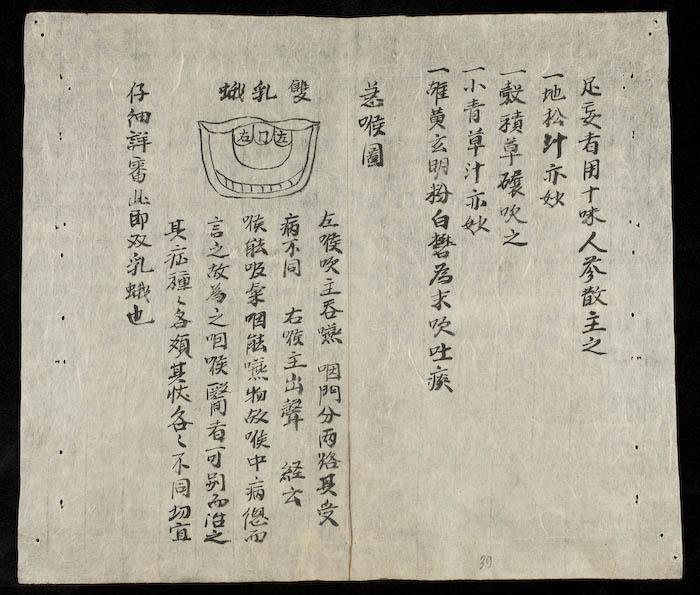 足妄者用十味人參散主之
一地松汁亦妙
一穀積草碾吹之
一小青草汁亦妙
一雄黃玄明粉白礬為末吹吐痰
喉圖
雙乳蛾
左口右
左喉吹主吞嚥咽門分两路其受
病不同 右喉主出聲 経云
喉能吸氣咽能嚥物故喉中病總而
言之故為之咽喉醫者可别而治之
其症種〻各類其狀各〻不同切宜
仔細詳審此即双乳蛾也
39